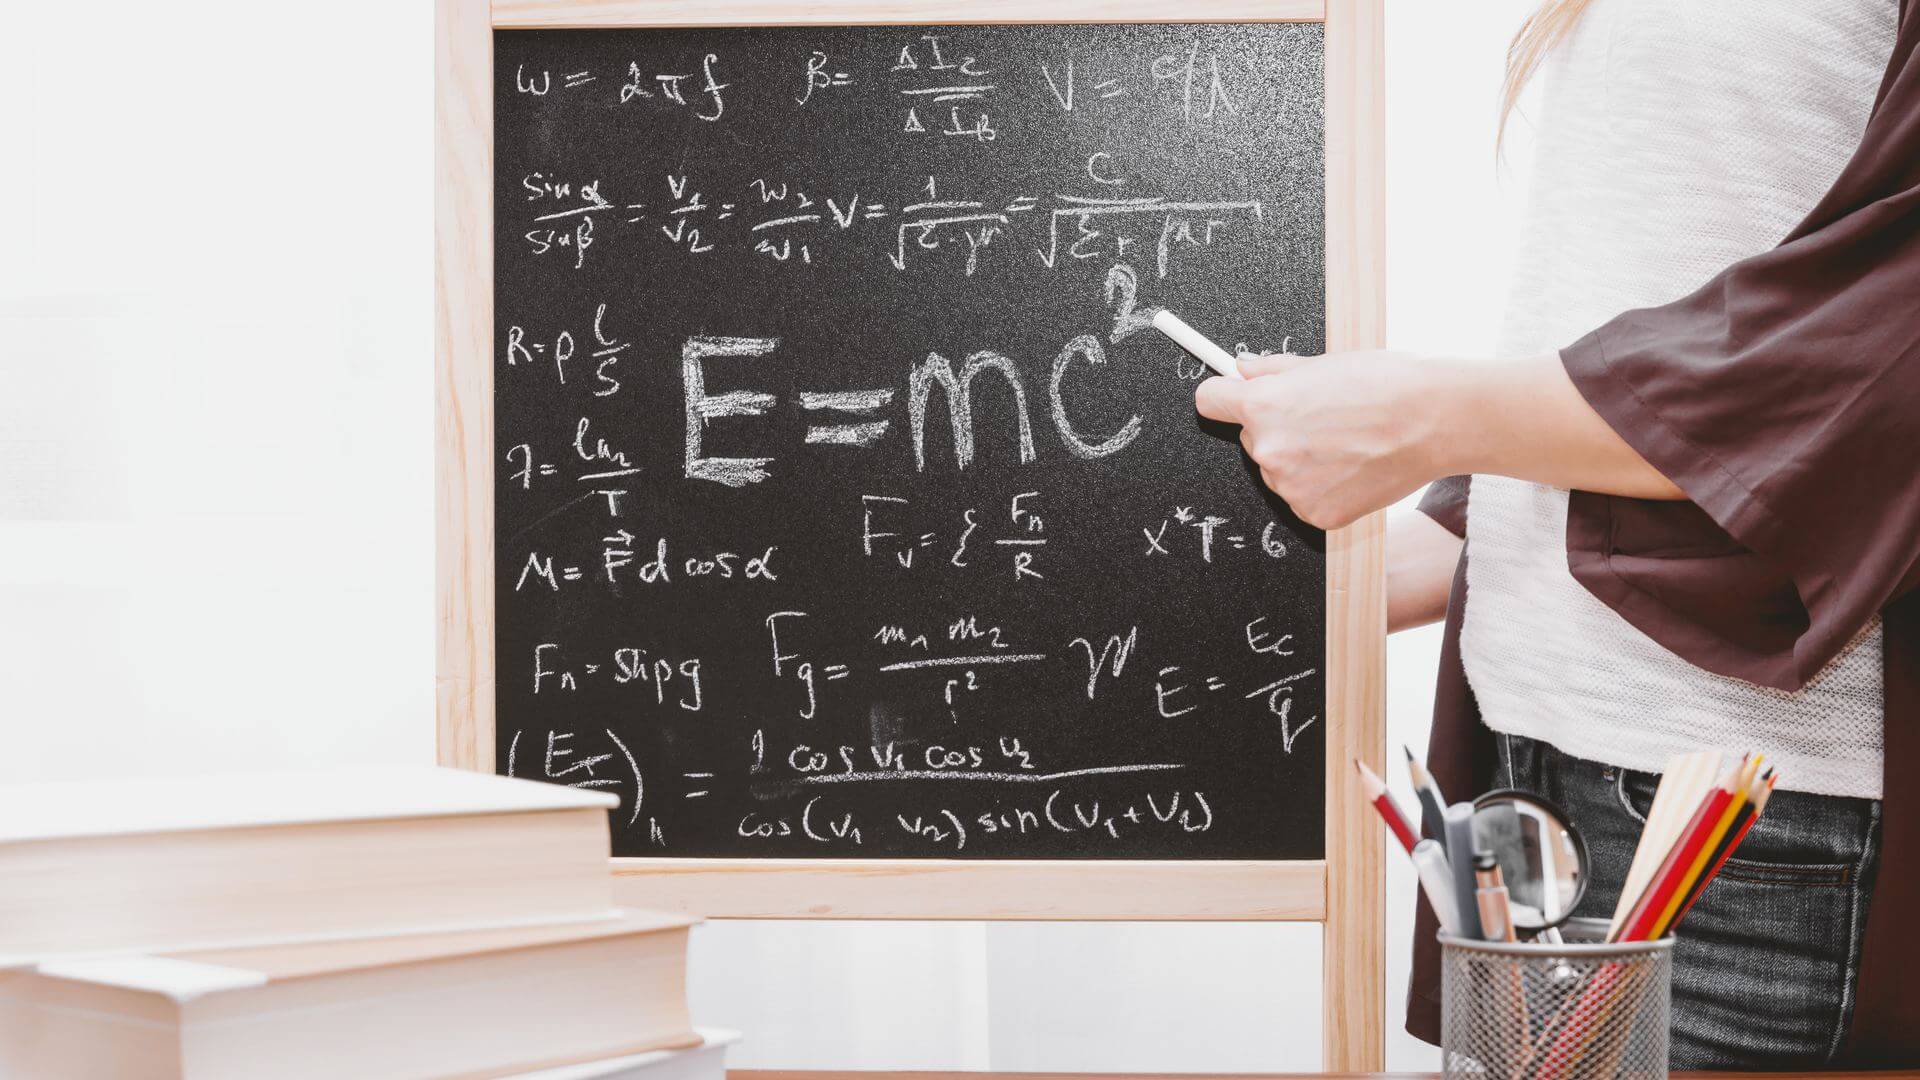 ω = 2πf β = ΔI_C / ΔI_B V = c/λ
sin α / sin β = v₁ / v₂ = w₂ / w₁ V = 1 / √(ε·μ) = c / √(ε_r μ_r)
R = ρ l / S
E = mc²
λ = ln₂ / T
F_v = { F_n / R x*T = 6
M = F⃗ d cos α
F_n = shρg F_g = m₁ m₂ / r² E = E_C / q
(E / ) = 2 cos v₁ cos v₂ / cos(v₁ v₂) sin(v₁+v₂)